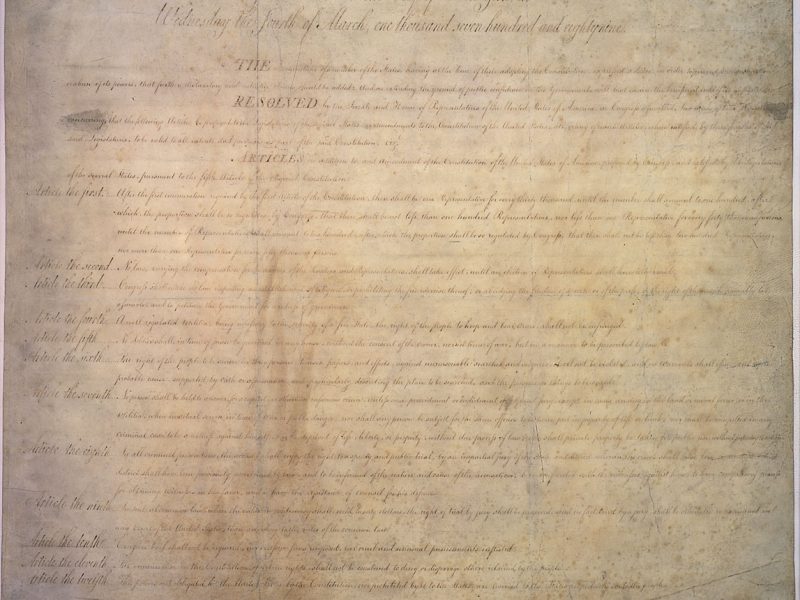 Wednesday the fourth of March, one thousand seven hundred and eighty nine.
THE Conventions of a number of the States, having at the time of their adopting the Constitution, expressed a desire, in order to prevent
abuse of its powers, that further declaratory and restrictive clauses should be added: And as extending the ground of public confidence in the Government, will best ensure the beneficent
RESOLVED by the Senate and House of Representatives of the United States of America, in Congress assembled, two thirds of both Houses
concurring, that the following Articles be proposed to the Legislatures of the several States, as amendments to the Constitution of the United States,
said Legislatures, to be valid to all intents and purposes, as part of the said Constitution. viz.
ARTICLES in addition to, and Amendment of the Constitution of the United States of America, proposed by Congress, and ratified by the Legislatures
of the several States, pursuant to the fifth Article of the Original Constitution.
Article the first. After the first enumeration required by the first Article of the Constitution, there shall be one Representative for every thirty thousand, until the number shall amount to one hundred, after
which, the proportion shall be so regulated by Congress, that there shall be not less than one hundred Representatives, nor less than one Representative for every forty thousand persons,
until the number of Representatives shall amount to two hundred, after which the proportion shall be so regulated by Congress, that there shall not be less than two hundred Representatives,
nor more than one Representative for every fifty thousand persons.
Article the second. No law, varying the compensation for the services of the Senators and Representatives, shall take effect, until an election of Representatives shall have intervened.
Article the third. Congress shall make no law respecting an establishment of religion, or prohibiting the free exercise thereof; or abridging the freedom of speech, or of the press; or the right of the people peaceably to
assemble, and to petition the Government for a redress of grievances.
Article the fourth. A well regulated Militia, being necessary to the security of a free State, the right of the people to keep and bear Arms, shall not be infringed.
Article the fifth. No Soldier shall, in time of peace be quartered in any house, without the consent of the owner, nor in time of war, but in a manner to be prescribed by law.
Article the sixth. The right of the people to be secure in their persons, houses, papers, and effects, against unreasonable searches and seizures, shall not be violated, and no warrants shall issue, but upon
probable cause, supported by oath or affirmation, and particularly describing the place to be searched, and the persons or things to be seized.
Article the seventh. No person shall be held to answer for a capital, or otherwise infamous crime, unless on a presentment or indictment of a Grand Jury, except in cases arising in the land or naval forces, or in the
Militia, when in actual service in time of War or public danger; nor shall any person be subject for the same offence to be twice put in jeopardy of life or limb; nor shall be compelled in any
criminal case to be a witness against himself, nor be deprived of life, liberty, or property, without due process of law; nor shall private property be taken for public use, without just compensation.
Article the eighth. In all criminal prosecutions, the accused shall enjoy the right to a speedy and public trial, by an impartial jury of the State and district wherein the crime shall have been committed, which
district shall have been previously ascertained by law, and to be informed of the nature and cause of the accusation; to be confronted with the witnesses against him; to have compulsory process
for obtaining witnesses in his favor, and to have the assistance of counsel for his defence.
Article the ninth. In suits at common law, where the value in controversy shall exceed twenty dollars, the right of trial by jury shall be preserved, and no fact, tried by a jury, shall be otherwise re-examined in any
Court of the United States, than according to the rules of the common law.
Article the tenth. Excessive bail shall not be required, nor excessive fines imposed, nor cruel and unusual punishments inflicted.
Article the eleventh. The enumeration in the Constitution, of certain rights, shall not be construed to deny or disparage others retained by the people.
Article the twelfth. The powers not delegated to the United States by the Constitution, nor prohibited by it to the States, are reserved to the States respectively, or to the people.